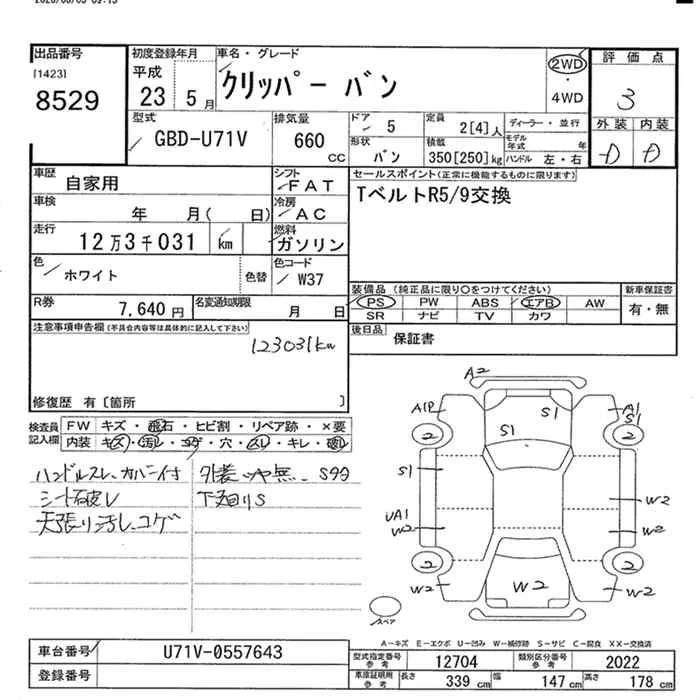 出品番号
[1423]
8529
初度登録年月
平成
23 年 5 月
車名・グレード
クリッパー バン
2WD
・
4WD
評価点
3
外装 内装
D D
型式
GBD-U71V
排気量
660
cc
ドア
5
形状
バン
定員
2[4]人
積載
350[250]kg
ディーラー・並行
モデル年式 年
ハンドル 左・右
車歴
自家用
シフト
FAT
車検
年 月( 日)
冷房
AC
走行
12万3千031 km
燃料
ガソリン
色
ホワイト
色替
色コード
W37
R券
7,640 円
名変通知期限
月 日
セールスポイント(正常に機能するものに限ります)
TベルトR5/9交換
装備品 (純正品に限り○をつけてください)
PS PW ABS エアB AW
SR ナビ TV カワ
新車保証書
有・無
後日品
保証書
注意事項申告欄(不具合内容等は具体的に記入して下さい)
123031km
修復歴 有[箇所 ]
検査員
記入欄
FW キズ・飛石・ヒビ割・リペア跡・×要
内装 キズ・汚レ・コゲ・穴・スレ・キレ・破レ
ハンドルスレ、カバー付
シート破レ
天張り汚レ、コゲ
外装ツヤ無、S多
下廻りS
A2
A1P
S1
S1
A1
S1
2
2
S1
UA1
W2
W2
W2
2
2
W2
W2
W2
スペア
A-キズ E-エクボ U-凹み W-補修跡 S-サビ C-腐食 XX-交換済
車台番号
U71V-0557643
登録番号
型式指定番号
参考
12704
類別区分番号
参考
2022
車庫証明用
参考
長さ
339 cm
幅
147 cm
高さ
178 cm